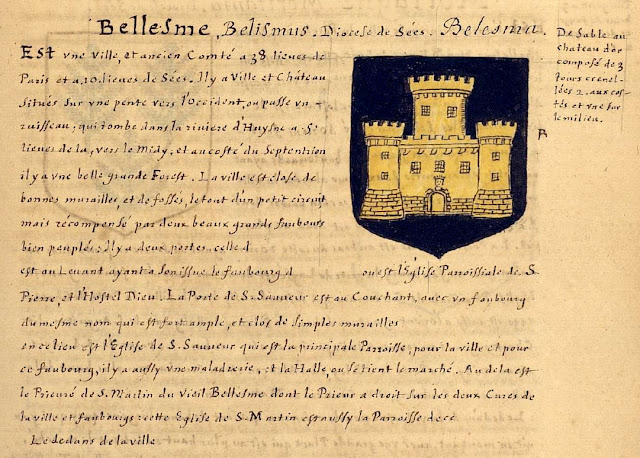 Bellesme, Belismus. Diocese de Sées. Belesma.
Est vne Ville, et ancien Comté a 38 lieues de
Paris et a 10 lieues de Sées. Il y a Ville et Château
situés sur vne pente vers l'Occident, ou passe vn
ruisseau; qui tombe dans la riviere d'Huysne a 5
lieues de la, vers le Midy; et au costé du Septention
il y a vne belle grande Forest. La ville est close de
bonnes murailles, et de fosses, le tout d'un petit circuit
mais récompensé par deux beaux grands faubours
bien peuplés; Il y a deux portes, celle d
est au Levant ayant a son issue le faubourg d ou est l'Eglise Parroissiale de S.
Pierre, et l'Hostel Dieu. La Porte de S. Sauveur est au Couchant, avec vn foubourg
du mesme nom qui est fort ample, et clos de simples murailles
en ce lieu est l'Eglise de S. Sauveur qui est la principale Parroisse, pour la ville et pour
ce faubourg, il y a aussy vne maladrerie, et la Halle, ou se tient le marché. Au dela est
le Prieuré de S. Martin du vieil Bellesme dont le Prieur a droit sur les deux Cures de
la ville et faubourgs; cette Eglise de S. Martin est aussy la Parroisse de ce
Le dedans de la ville
De Sable au
chateau d'or
composé de 3
tours crenel-
lées 2. aux cos-
tés et vne sur
le milieu.